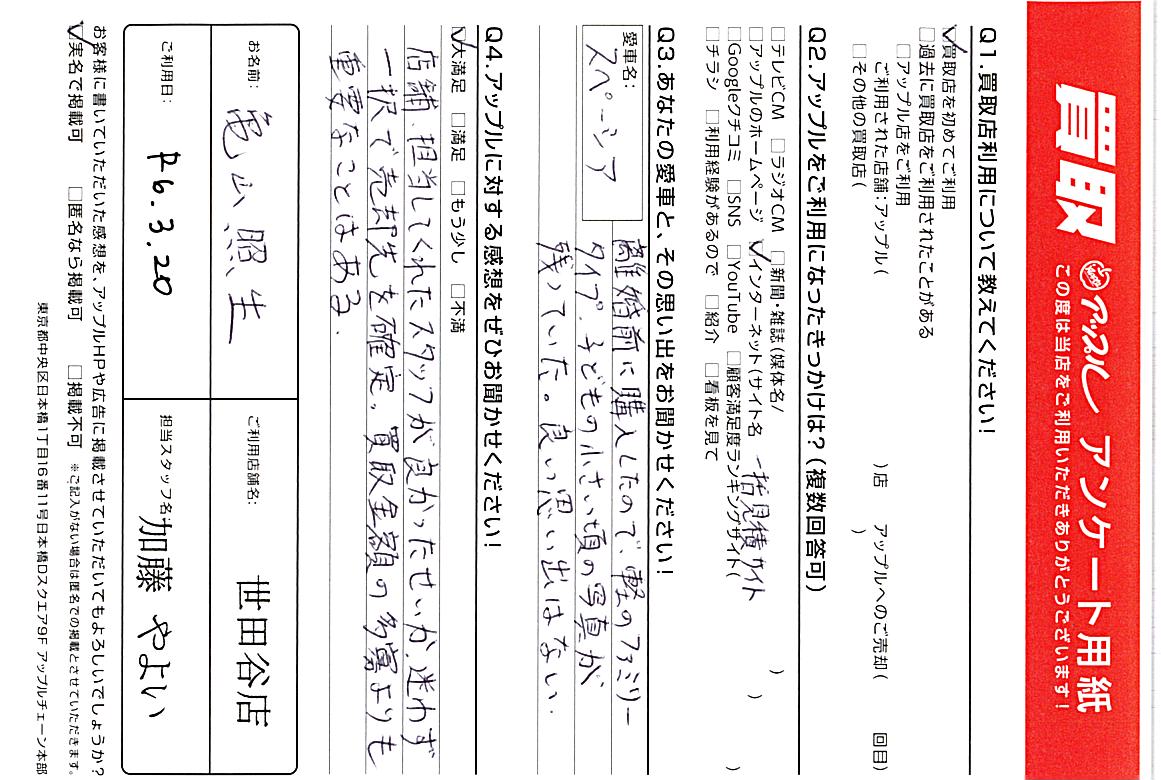 買取 アップル アンケート用紙
この度は当店をご利用いただきありがとうございます！
Q1.買取店利用について教えてください！
☑買取店を初めてご利用
□過去に買取店をご利用されたことがある
□アップル店をご利用
ご利用された店舗：アップル（　　　）店　アップルへのご売却（　　回目）
□その他の買取店（　　　）
Q2.アップルをご利用になったきっかけは？（複数回答可）
□テレビCM □ラジオCM □新聞・雑誌（媒体名/　　　）
□アップルのホームページ ☑インターネット（サイト名 一括見積サイト　）
□Googleクチコミ □SNS □YouTube □顧客満足度ランキングサイト（　　　）
□チラシ □利用経験があるので □紹介 □看板を見て
Q3.あなたの愛車と、その思い出をお聞かせください！
愛車名：
スペーシア
離婚前に購入したので、軽のファミリー
タイプ。子どもの小さい頃の写真が
残っていた。良い思い出はない.
Q4.アップルに対する感想をぜひお聞かせください！
☑大満足 □満足 □もう少し □不満
店舗、担当してくれたスタッフが良かったせいか、迷わず
一択で売却先を確定。買取金額の多寡よりも
重要なことはある.
お名前： 亀山照生
ご利用店舗名： 世田谷店
ご利用日： R6.3.20
担当スタッフ名： 加藤 やよい
お客様に書いていただいた感想を、アップルHPや広告に掲載させていただいてもよろしいでしょうか？
☑実名で掲載可 □匿名なら掲載可 □掲載不可 ※ご記入がない場合は匿名での掲載とさせていただきます。
東京都中央区日本橋1丁目16番11号日本橋Dスクエア9F アップルチェーン本部